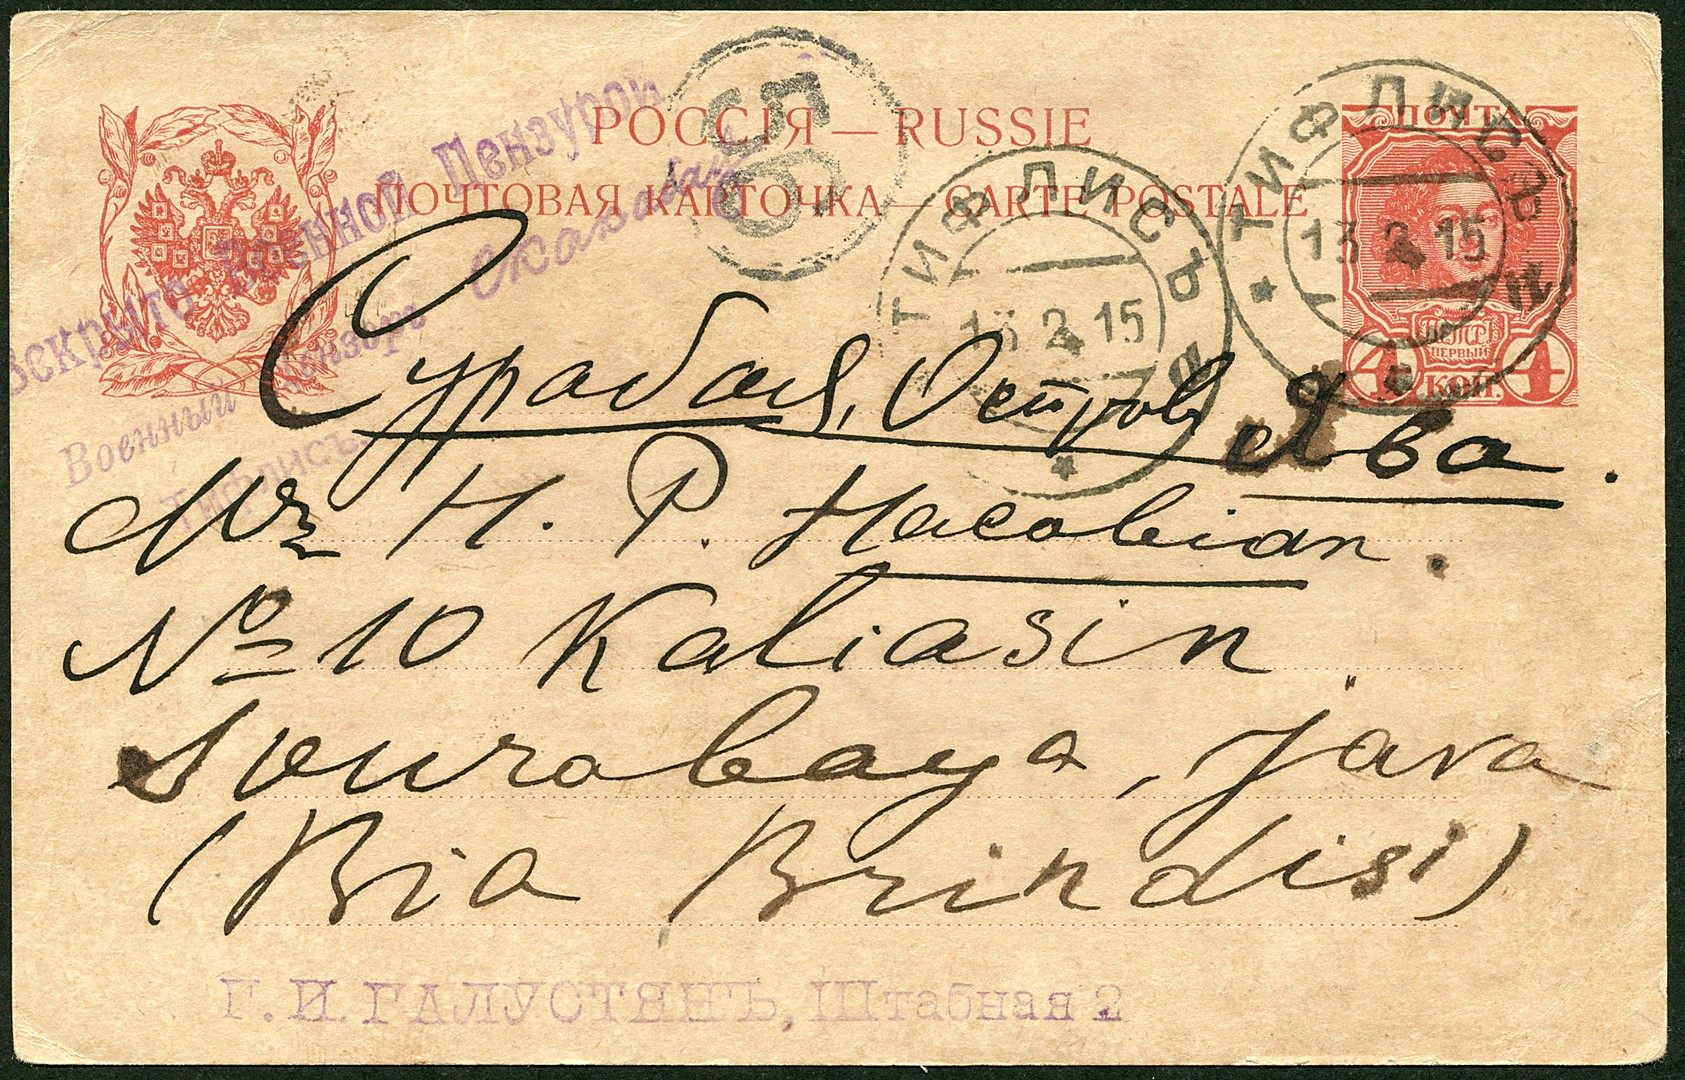 РОССІЯ — RUSSIE
ПОЧТОВАЯ КАРТОЧКА — CARTE POSTALE
ПОЧТА
ПЕТРЪ
ПЕРВЫЙ
4 КОП. 4
65
ТИФЛИСЪ
13 2 15
ТИФЛИСЪ
13 2 15
Вскрыто Военной Цензурой
Военный Цензоръ
Тифлисъ.
Сурабая, Островъ Ява.
Mr H. P. Hacobian.
No 10 Kaliasin
Sourabaya, Java
(Via Brindisi)
Г. И. ГАЛУСТЯНЪ, Штабная 2